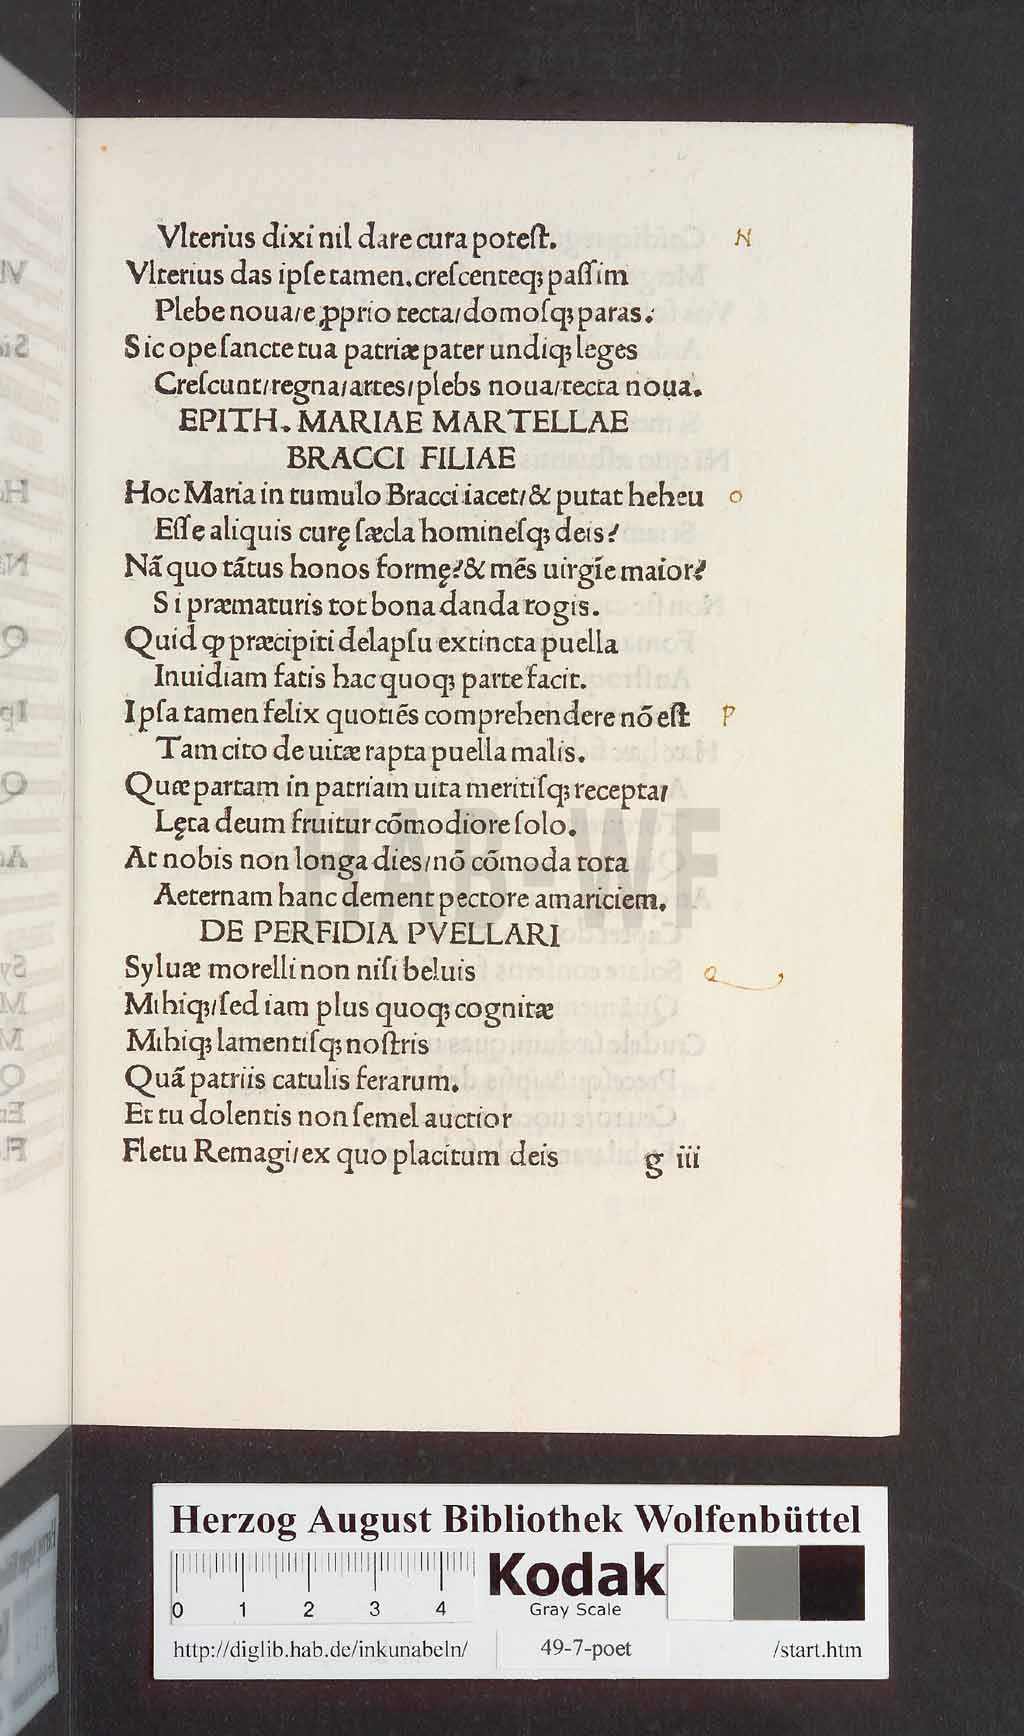 Vlterius dixi nil dare cura poteſt. N
Vlterius das ipſe tamen. creſcenteqꝫ paſſim
Plebe noua/e ꝓprio tecta/domoſqꝫ paras.
Sic ope ſancte tua patriæ pater undiqꝫ leges
Creſcunt/regna/artes/plebs noua/tecta noua.
EPITH. MARIAE MARTELLAE
BRACCI FILIAE
Hoc Maria in tumulo Bracci iacet/& putat heheu O
Eſſe aliquis curę ſæcla homineſqꝫ deis?
Nã quo tãtus honos formę?& mẽs uirgĩe maior?
Si præmaturis tot bona danda rogis.
Quid ꝙ præcipiti delapſu extincta puella
Inuidiam fatis hac quoqꝫ parte facit.
Ipſa tamen felix quotiẽs comprehendere nõ eſt P
Tam cito de uitæ rapta puella malis.
Quæ partam in patriam uita meritiſqꝫ recepta/
Lęta deum fruitur cõmodiore ſolo.
At nobis non longa dies/nõ cõmoda tota
Aeternam hanc dement pectore amariciem.
DE PERFIDIA PVELLARI
Syluæ morelli non niſi beluis Q
Mihiqꝫ/ſed iam plus quoqꝫ cognitæ
Mihiqꝫ lamentiſqꝫ noſtris
Quã patriis catulis ferarum.
Et tu dolentis non ſemel auctior
Fletu Remagi/ex quo placitum deis g iii
HAB-WF
Herzog August Bibliothek Wolfenbüttel
0 1 2 3 4
Kodak
Gray Scale
http://diglib.hab.de/inkunabeln/ 49-7-poet /start.htm